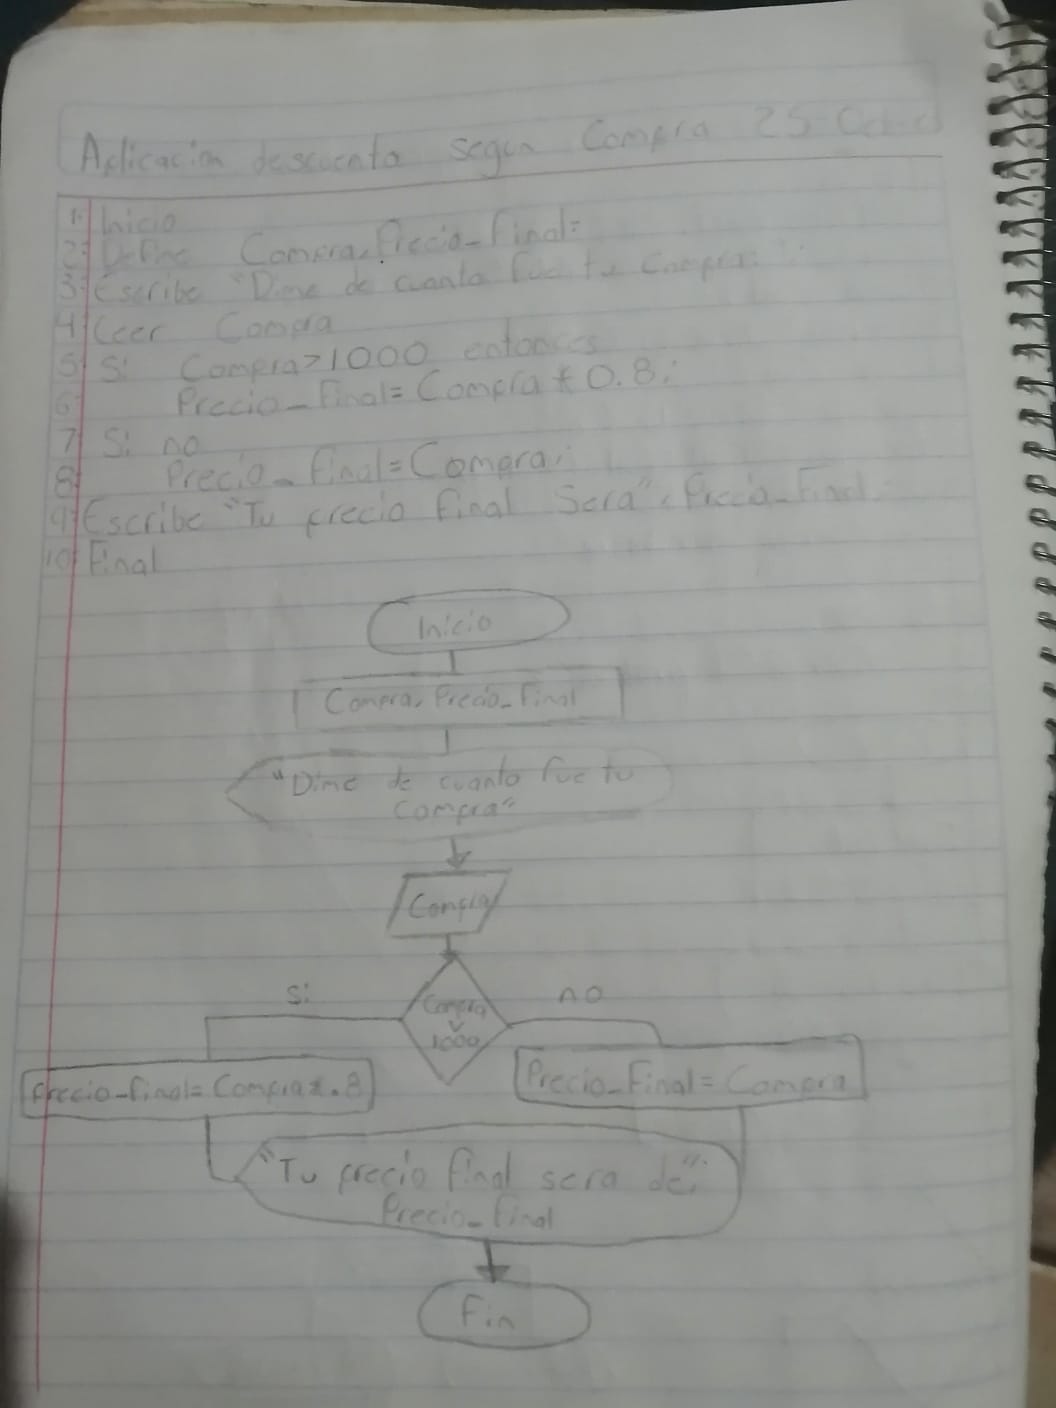 Aplicacion descuento segun Compra 25 Oct
1. Inicio
2. Define Compra, Precio_Final=
3. Escribe "Dime de cuanto fue tu Compra:"
4 Leer Compra
5 Si Compra>1000 entonces
6 Precio_Final= Compra * 0.8;
7 Si no
8 Precio_Final=Compra;
9 Escribe "Tu precio final Sera", Precio_Final
10 Final
Inicio
Compra, Precio_Final
"Dime de cuanto fue tu
Compra"
Compra
Si
no
Compra
>
1000
Precio_final= Compra*.8
Precio_Final= Compra
"Tu precio final sera de";
Precio_Final
Fin